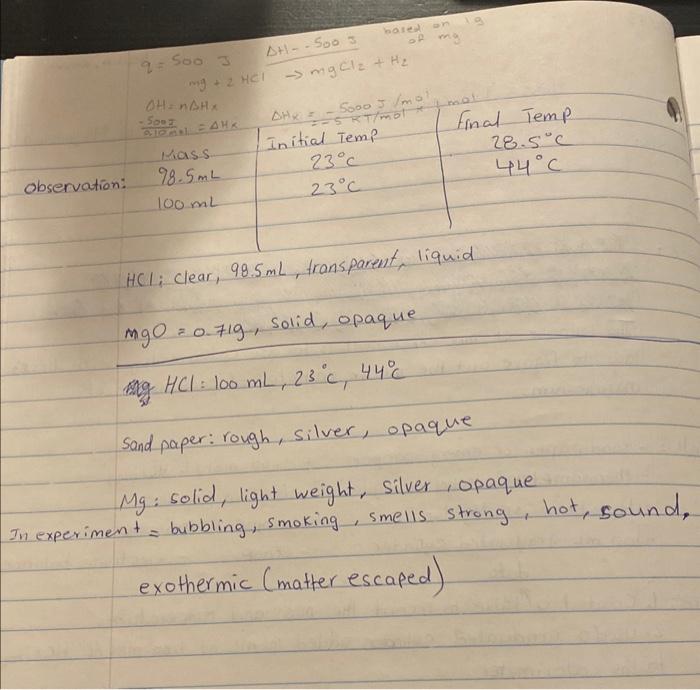 based on 1g
q = 500 J ΔH = -500 J of mg
mg + 2 HCl → mgCl2 + H2
ΔH = nΔHx
-500J / 0.10mol = ΔHx ΔHx = -5000 J/mol
= -5 KJ/mol
Mass Initial Temp Final Temp
Observation: 98.5mL 23°C 28.5°C
100 mL 23°C 44°C
HCl: clear, 98.5mL, transparent, liquid
mgO = 0.71g, solid, opaque
HCl: 100 mL, 23°C, 44°C
Sand paper: rough, silver, opaque
Mg: solid, light weight, silver, opaque
In experiment = bubbling, smoking, smells strong, hot, sound,
exothermic (matter escaped)